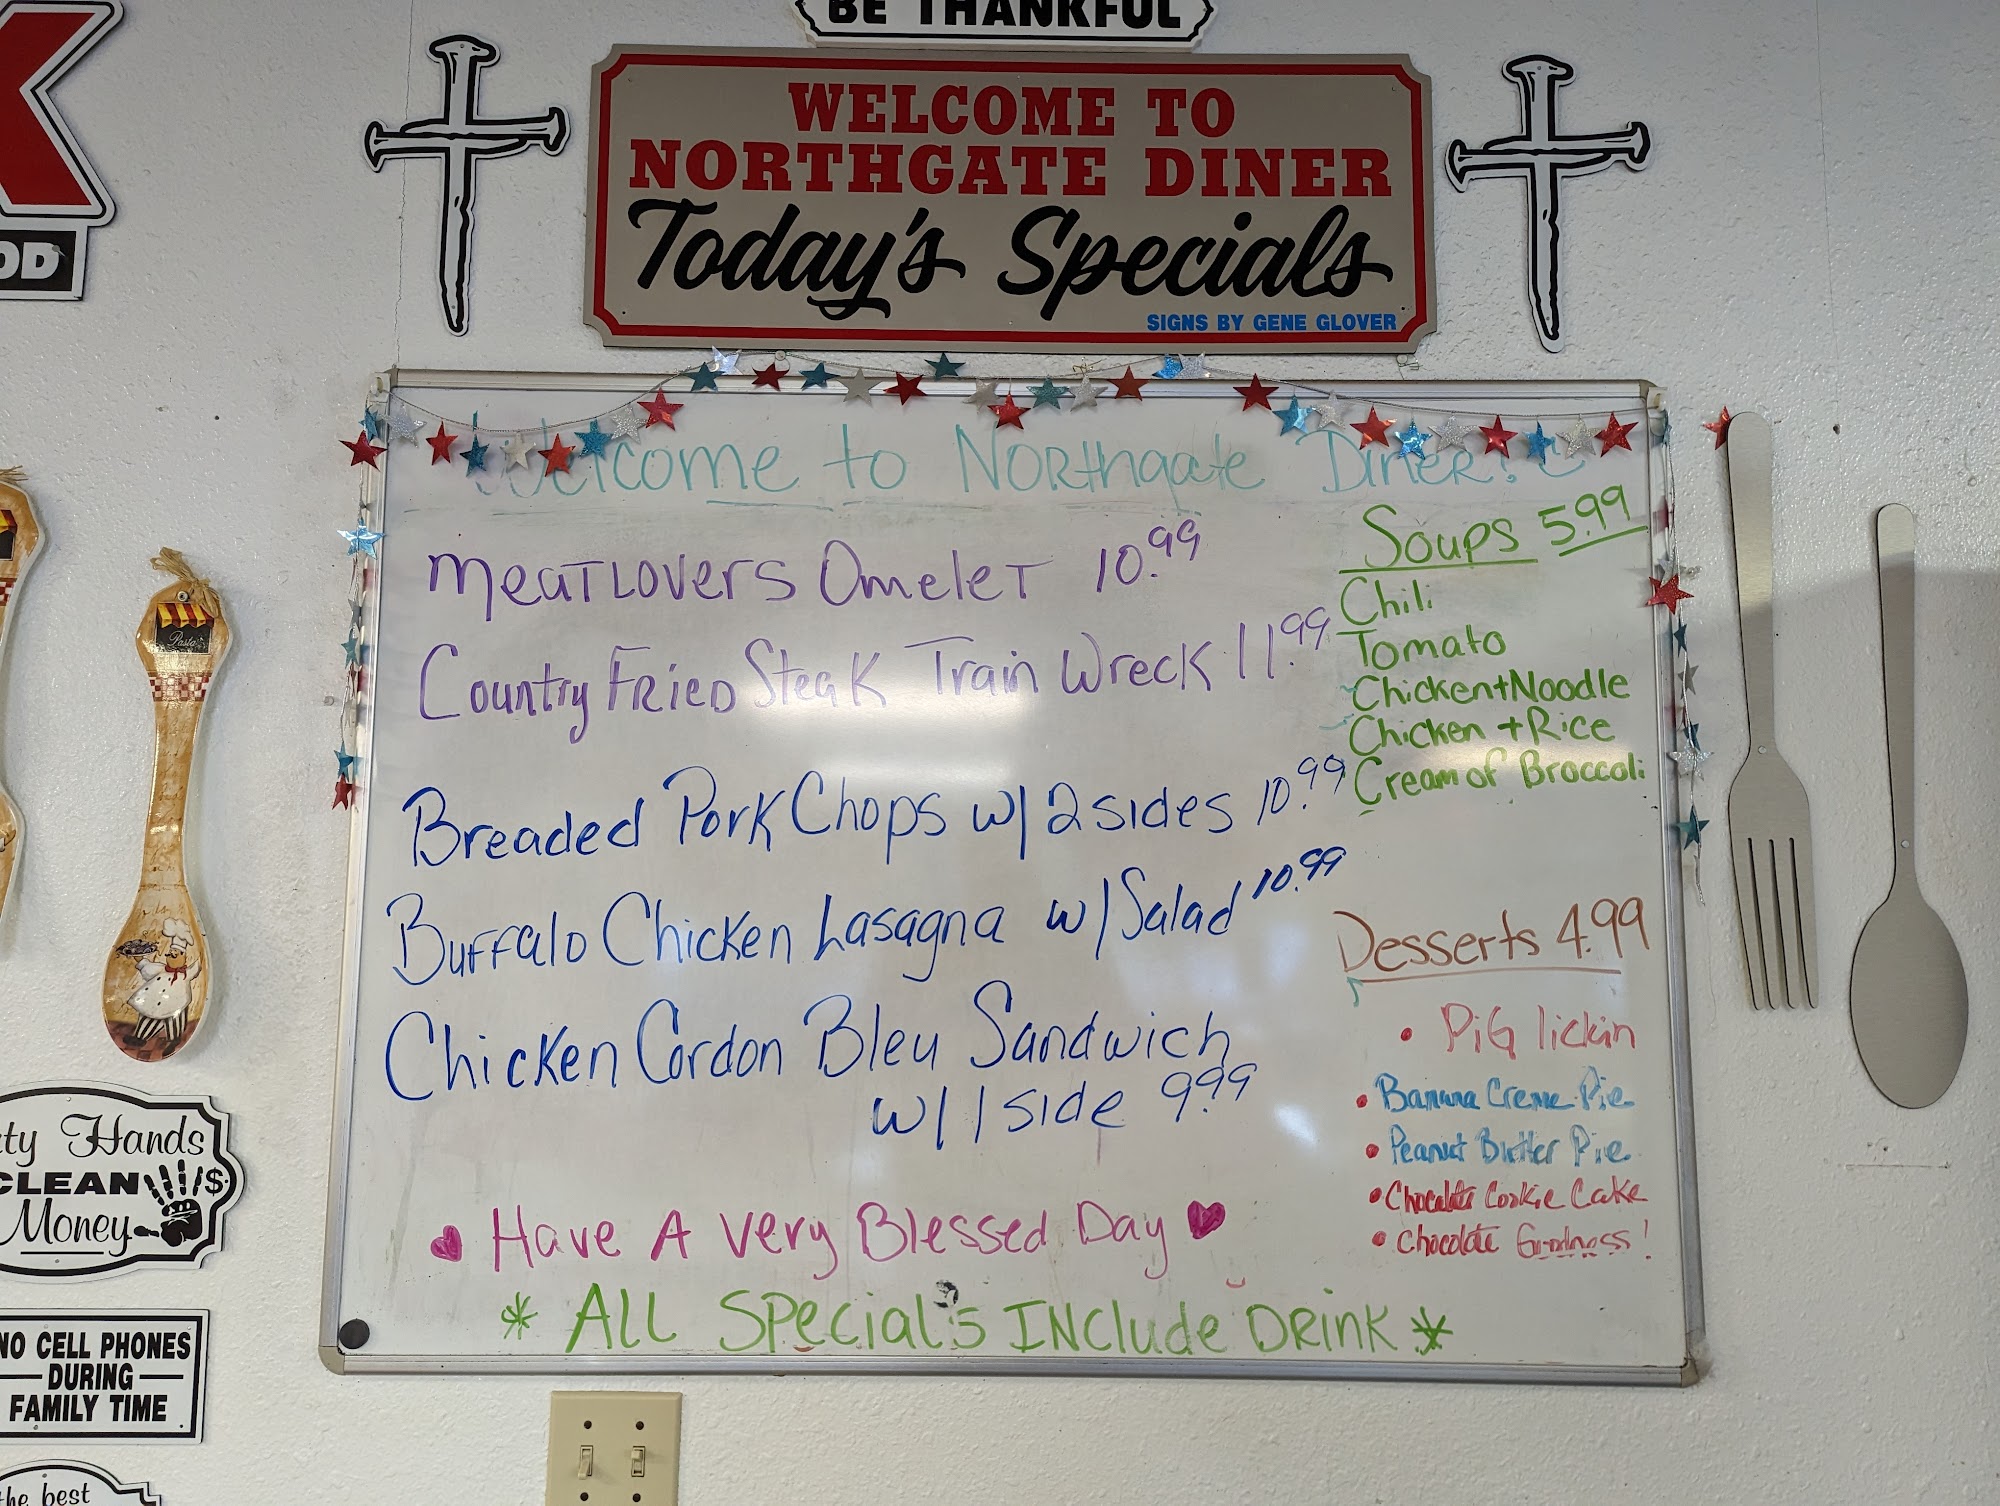 BE THANKFUL
WELCOME TO
NORTHGATE DINER
Today's Specials
SIGNS BY GENE GLOVER
K
OD
Welcome to Northgate Diner!
Meatlovers Omelet 10.99
Country Fried Steak Train Wreck 11.99
Breaded Pork Chops w/ 2 sides 10.99
Buffalo Chicken Lasagna w/ Salad 10.99
Chicken Cordon Bleu Sandwich
w/ 1 side 9.99
Soups 5.99
Chili
Tomato
Chicken + Noodle
Chicken + Rice
Cream of Broccoli
Desserts 4.99
• PiG lickin
• Banana Creme Pie
• Peanut Butter Pie
• Chocolate Cookie Cake
• Chocolate Goodness!
♥ Have A Very Blessed Day ♥
* ALL SPecial's INClude DRINK *
Pasta
ty Hands
CLEAN
Money
$
NO CELL PHONES
DURING
FAMILY TIME
the best